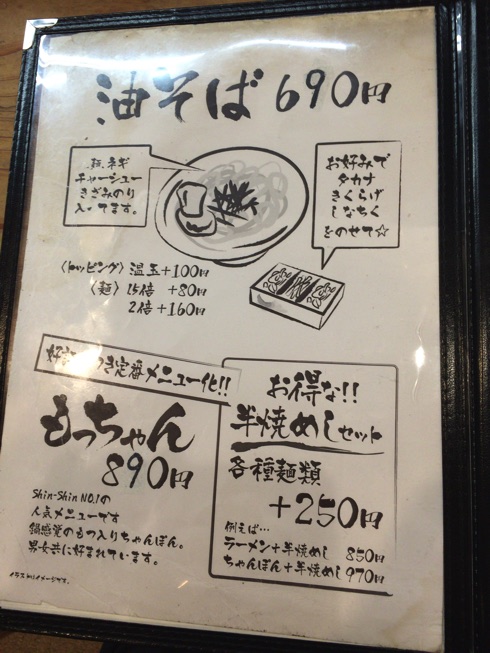 油そば 690円
麺、ネギ
チャーシュー
きざみのり
入ってます。
お好みで
タカナ
きくらげ
しなちく
をのせて☆
〈トッピング〉温玉+100円
〈麺〉1.5倍 +80円
2倍 +160円
好評 き定番メニュー化!!
もっちゃん
890円
Shin-Shin NO.1の
人気メニューです
鍋感覚のもつ入りちゃんぽん。
男女共に好まれています。
イラストはイメージです。
お得な!!
半焼めしセット
各種麺類
+250円
例えば…
ラーメン+半焼めし 850円
ちゃんぽん+半焼めし 970円